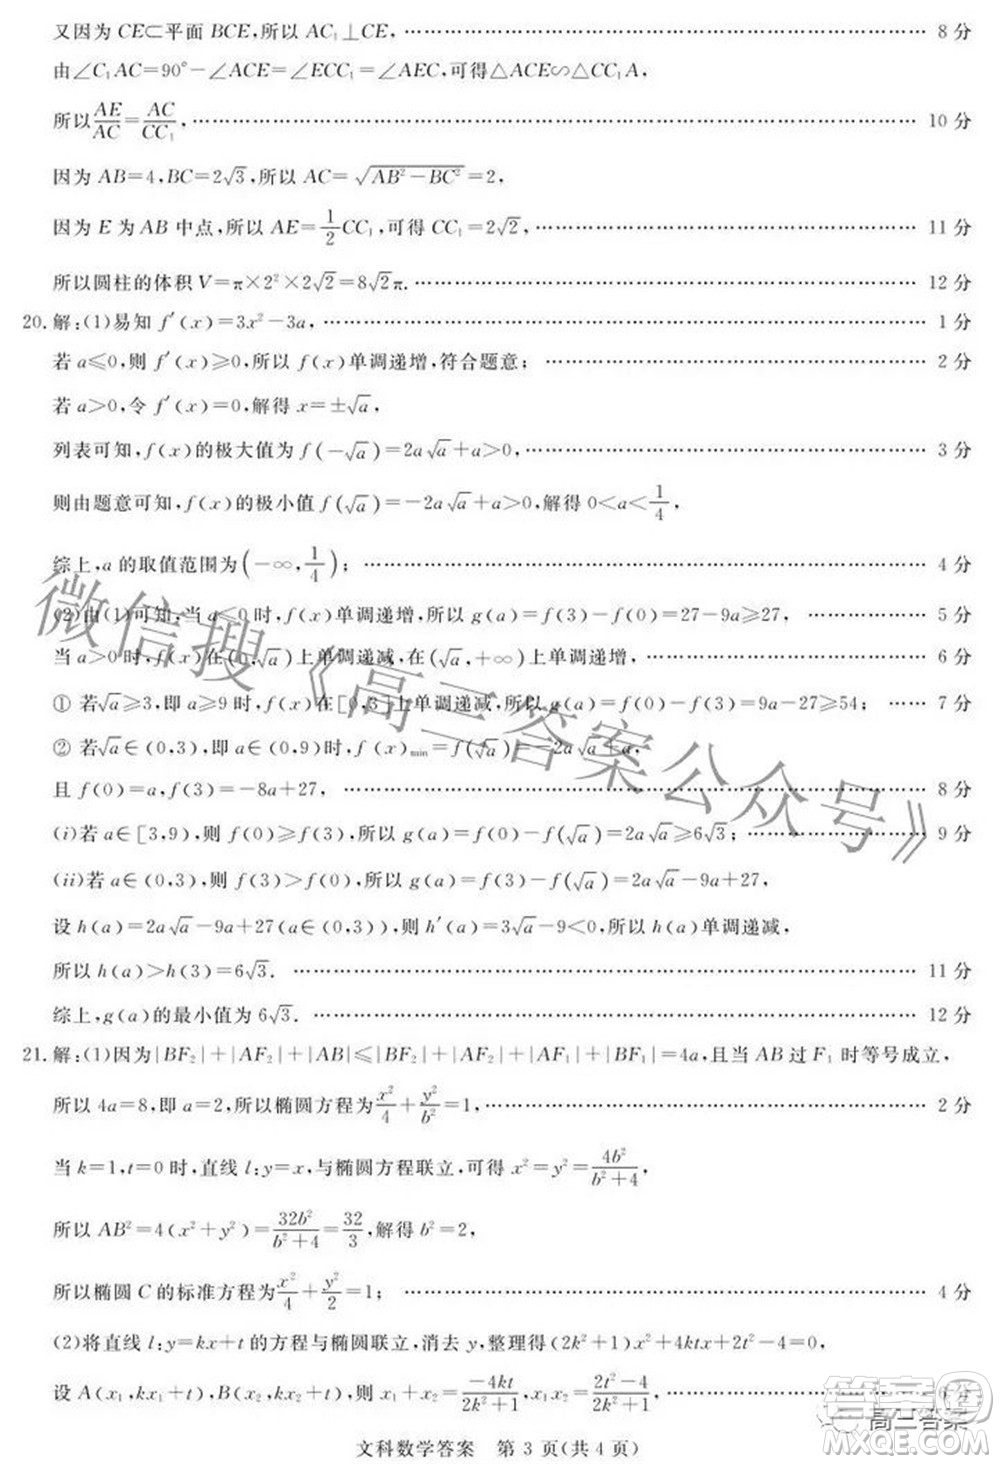 又因为 CE⊂平面 BCE,所以 AC₁⊥CE, …… 8 分
由∠C₁AC=90°−∠ACE=∠ECC₁=∠AEC,可得△ACE∽△CC₁A,
所以 AE/AC=AC/CC₁, …… 10 分
因为 AB=4,BC=2√3,所以 AC=√(AB²−BC²)=2,
因为 E 为 AB 中点,所以 AE=1/2CC₁,可得 CC₁=2√2, …… 11 分
所以圆柱的体积 V=π×2²×2√2=8√2π. …… 12 分
20. 解:(1)易知 f′(x)=3x²−3a, …… 1 分
若 a≤0,则 f′(x)≥0,所以 f(x)单调递增,符合题意; …… 2 分
若 a>0,令 f′(x)=0,解得 x=±√a,
列表可知,f(x)的极大值为 f(−√a)=2a√a+a>0, …… 3 分
则由题意可知,f(x)的极小值 f(√a)=−2a√a+a>0,解得 0<a<1/4,
综上,a 的取值范围为(−∞,1/4); …… 4 分
(2)由(1)可知,当 a≤0 时,f(x)单调递增,所以 g(a)=f(3)−f(0)=27−9a≥27, …… 5 分
当 a>0 时,f(x)在(0,√a)上单调递减,在(√a,+∞)上单调递增, …… 6 分
① 若√a≥3,即 a≥9 时,f(x)在[0,3]上单调递减,所以 g(a)=f(0)−f(3)=9a−27≥54; …… 7 分
② 若√a∈(0,3),即 a∈(0,9)时,f(x)min=f(√a)=−2a√a+a,
且 f(0)=a,f(3)=−8a+27, …… 8 分
(i)若 a∈[3,9),则 f(0)≥f(3),所以 g(a)=f(0)−f(√a)=2a√a≥6√3; …… 9 分
(ii)若 a∈(0,3),则 f(3)>f(0),所以 g(a)=f(3)−f(√a)=2a√a−9a+27,
设 h(a)=2a√a−9a+27(a∈(0,3)),则 h′(a)=3√a−9<0,所以 h(a)单调递减,
所以 h(a)>h(3)=6√3. …… 11 分
综上,g(a)的最小值为 6√3. …… 12 分
21. 解:(1)因为|BF₂|+|AF₂|+|AB|≤|BF₂|+|AF₂|+|AF₁|+|BF₁|=4a,且当 AB 过 F₁ 时等号成立,
所以 4a=8,即 a=2,所以椭圆方程为 x²/4+y²/b²=1, …… 2 分
当 k=1,t=0 时,直线 l:y=x,与椭圆方程联立,可得 x²=y²=4b²/(b²+4),
所以 AB²=4(x²+y²)=32b²/(b²+4)=32/3,解得 b²=2,
所以椭圆 C 的标准方程为 x²/4+y²/2=1; …… 4 分
(2)将直线 l:y=kx+t 的方程与椭圆联立,消去 y,整理得(2k²+1)x²+4ktx+2t²−4=0,
设 A(x₁,kx₁+t),B(x₂,kx₂+t),则 x₁+x₂=−4kt/(2k²+1),x₁x₂=(2t²−4)/(2k²+1), …… 6 分
文科数学答案 第 3 页(共 4 页)
微信搜《高三答案公众号》
高三答案
答案圈
MXQE.COM